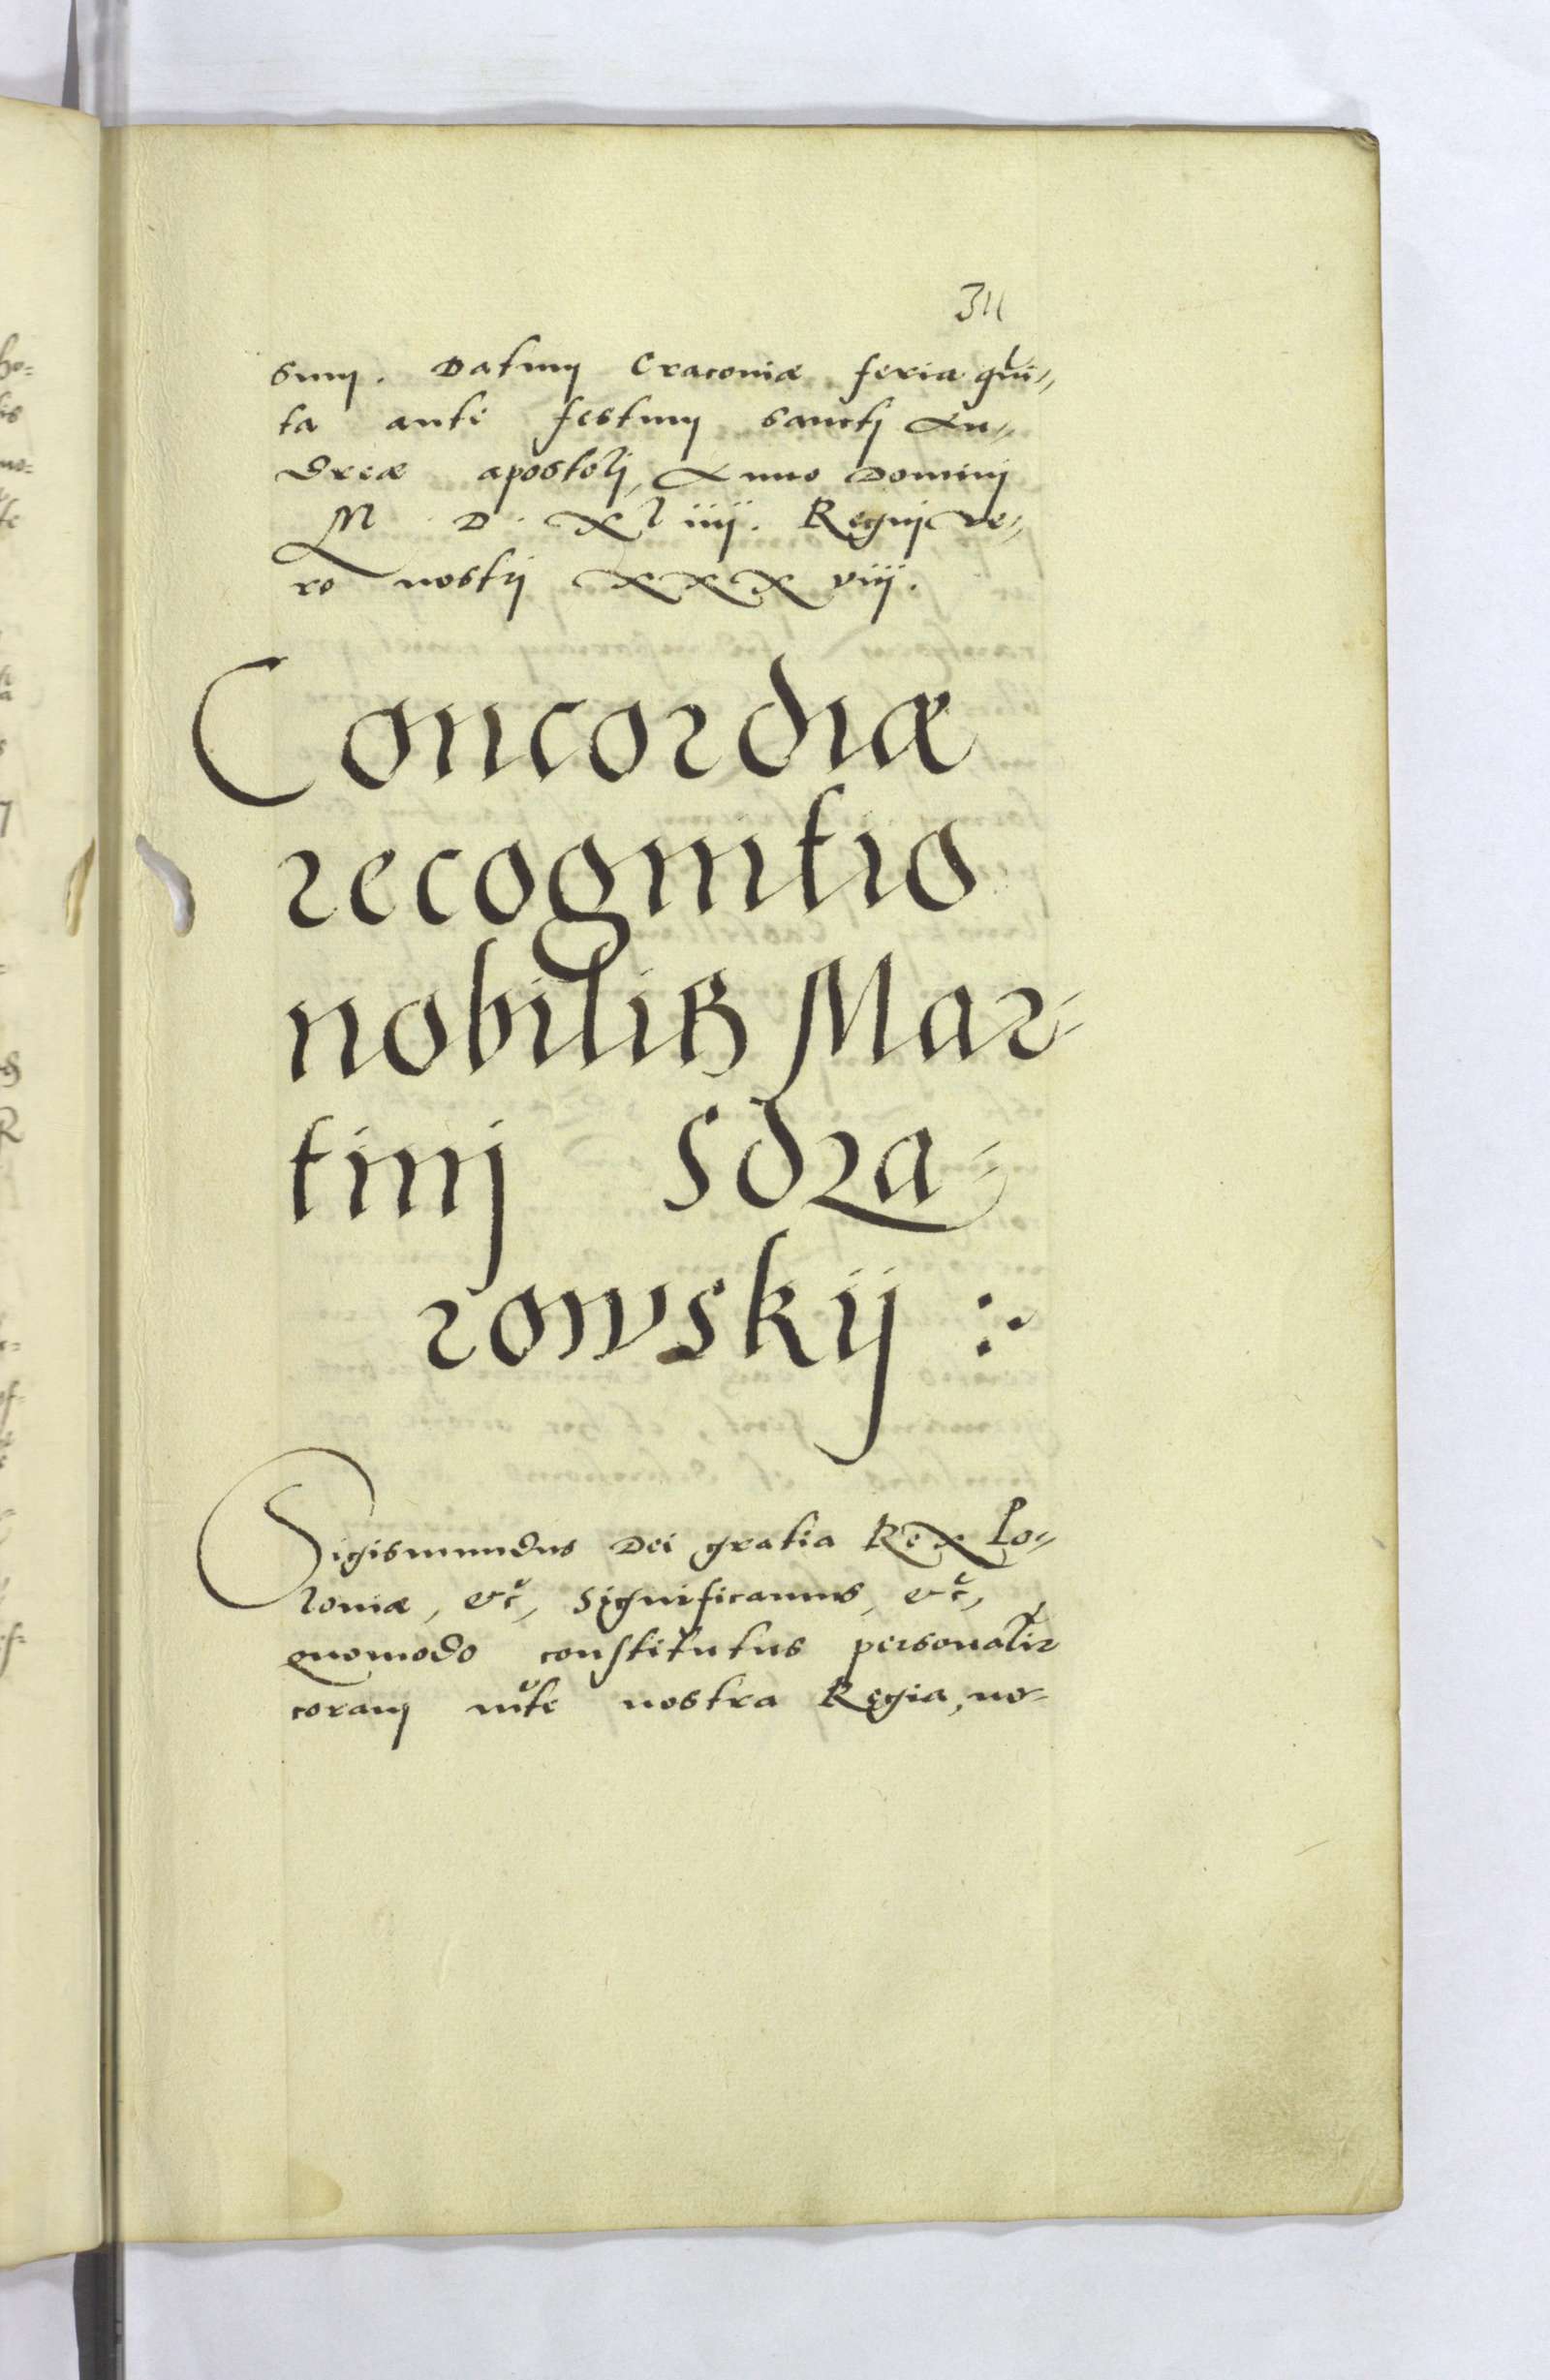 311
sum. Datum Craconiæ feria qui-
ta ante festum sancti An-
dreæ apostoli, Anno Domini
M D Xliiij. Regni ve-
ro nostri XXXviij.
Concordiæ
recognitio
nobilis Mar-
tinj Sdza-
rowskij :~
Sigismundus Dei gratia Rex Po-
loniæ, etc, Significamus, etc,
quomodo constitutus personalir
coram mte nostra Regia, no-